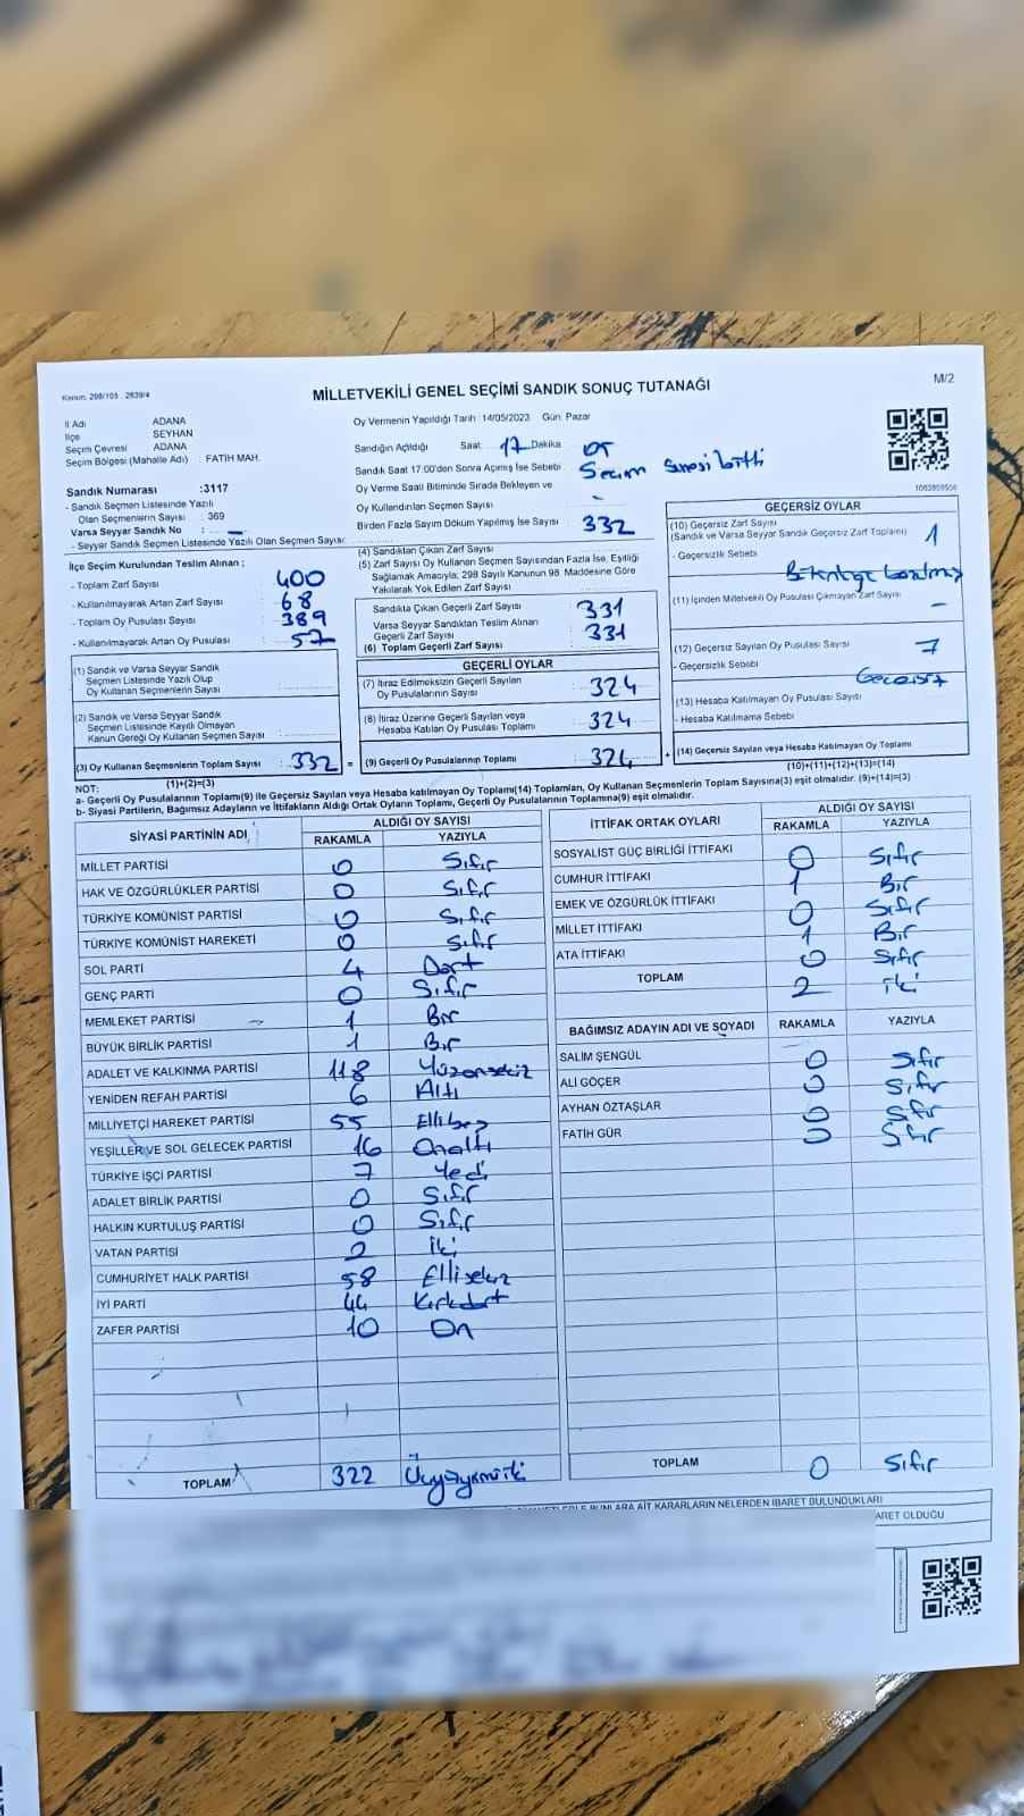 M/2
MİLLETVEKİLİ GENEL SEÇİMİ SANDIK SONUÇ TUTANAĞI
İl Adı ADANA
İlçe SEYHAN
Seçim Çevresi ADANA
Seçim Bölgesi (Mahalle Adı) : FATİH MAH.
Oy Vermenin Yapıldığı Tarih : 14/05/2023 Gün: Pazar
Sandığın Açıldığı Saat: 17 Dakika
Sandık Saat 17:00'den Sonra Açılmış İse Sebebi Seçim süresi bitti
Oy Verme Saati Bitiminde Sırada Bekleyen ve
Oy Kullandırılan Seçmen Sayısı -
Birden Fazla Sayım Döküm Yapılmış İse Sayısı
332
Sandık Numarası :3117
- Sandık Seçmen Listesinde Yazılı
Olan Seçmenlerin Sayısı : 369
Varsa Seyyar Sandık No : -
- Seyyar Sandık Seçmen Listesinde Yazılı Olan Seçmen Sayısı:
İlçe Seçim Kurulundan Teslim Alınan ;
- Toplam Zarf Sayısı 400
- Kullanılmayarak Artan Zarf Sayısı 68
- Toplam Oy Pusulası Sayısı 389
- Kullanılmayarak Artan Oy Pusulası 57
(1) Sandık ve Varsa Seyyar Sandık
Seçmen Listesinde Yazılı Olup
Oy Kullanan Seçmenlerin Sayısı
(2) Sandık ve Varsa Seyyar Sandık
Seçmen Listesinde Kayıtlı Olmayan
Kanun Gereği Oy Kullanan Seçmen Sayısı
(3) Oy Kullanan Seçmenlerin Toplam Sayısı : 332 =
(1)+(2)=(3)
(4) Sandıktan Çıkan Zarf Sayısı
(5) Zarf Sayısı Oy Kullanan Seçmen Sayısından Fazla İse, Eşitliği
Sağlamak Amacıyla; 298 Sayılı Kanunun 98. Maddesine Göre
Yakılarak Yok Edilen Zarf Sayısı
Sandıkta Çıkan Geçerli Zarf Sayısı 331
Varsa Seyyar Sandıktan Teslim Alınan
Geçerli Zarf Sayısı
(6) Toplam Geçerli Zarf Sayısı 331
GEÇERLİ OYLAR
(7) İtiraz Edilmeksizin Geçerli Sayılan
Oy Pusulalarının Sayısı : 324
(8) İtiraz Üzerine Geçerli Sayılan veya
Hesaba Katılan Oy Pusulası Toplamı : 324
(9) Geçerli Oy Pusulalarının Toplamı : 324 +
GEÇERSİZ OYLAR
(10) Geçersiz Zarf Sayısı
(Sandık ve Varsa Seyyar Sandık Geçersiz Zarf Toplamı) 1
- Geçersizlik Sebebi
(11) İçinden Milletvekili Oy Pusulası Çıkmayan Zarf Sayısı -
(12) Geçersiz Sayılan Oy Pusulası Sayısı 7
- Geçersizlik Sebebi
Geçersiz
(13) Hesaba Katılmayan Oy Pusulası Sayısı
- Hesaba Katılmama Sebebi
(14) Geçersiz Sayılan veya Hesaba Katılmayan Oy Toplamı
(10)+(11)+(12)+(13)=(14)
NOT:
a- Geçerli Oy Pusulalarının Toplamı(9) ile Geçersiz Sayılan veya Hesaba katılmayan Oy Toplamı(14) Toplamları, Oy Kullanan Seçmenlerin Toplam Sayısına(3) eşit olmalıdır. (9)+(14)=(3)
b- Siyasi Partilerin, Bağımsız Adayların ve İttifakların Aldığı Ortak Oyların Toplamı, Geçerli Oy Pusulalarının Toplamına(9) eşit olmalıdır.
SİYASİ PARTİNİN ADI ALDIĞI OY SAYISI
RAKAMLA YAZIYLA
MİLLET PARTİSİ 0 Sıfır
HAK VE ÖZGÜRLÜKLER PARTİSİ 0 Sıfır
TÜRKİYE KOMÜNİST PARTİSİ 0 Sıfır
TÜRKİYE KOMÜNİST HAREKETİ 0 Sıfır
SOL PARTİ 4 Dört
GENÇ PARTİ 0 Sıfır
MEMLEKET PARTİSİ 1 Bir
BÜYÜK BİRLİK PARTİSİ 1 Bir
ADALET VE KALKINMA PARTİSİ 118 Yüzonsekiz
YENİDEN REFAH PARTİSİ 6 Altı
MİLLİYETÇİ HAREKET PARTİSİ 55 Ellibeş
YEŞİLLER VE SOL GELECEK PARTİSİ 16 Onaltı
TÜRKİYE İŞÇİ PARTİSİ 7 Yedi
ADALET BİRLİK PARTİSİ 0 Sıfır
HALKIN KURTULUŞ PARTİSİ 0 Sıfır
VATAN PARTİSİ 2 İki
CUMHURİYET HALK PARTİSİ 58 Ellisekiz
İYİ PARTİ 44 Kırkdört
ZAFER PARTİSİ 10 On
TOPLAM 322 Üçyüzyirmiiki
İTTİFAK ORTAK OYLARI ALDIĞI OY SAYISI
RAKAMLA YAZIYLA
SOSYALİST GÜÇ BİRLİĞİ İTTİFAKI 0 Sıfır
CUMHUR İTTİFAKI 1 Bir
EMEK VE ÖZGÜRLÜK İTTİFAKI 0 Sıfır
MİLLET İTTİFAKI 1 Bir
ATA İTTİFAKI 0 Sıfır
TOPLAM 2 iki
BAĞIMSIZ ADAYIN ADI VE SOYADI RAKAMLA YAZIYLA
SALİM ŞENGÜL 0 Sıfır
ALİ GÖÇER 0 Sıfır
AYHAN ÖZTAŞLAR 0 Sıfır
FATİH GÜR 0 Sıfır
TOPLAM 0 Sıfır
BUNLARA AİT KARARLARIN NELERDEN İBARET BULUNDUKLARI
ARET OLDUĞU